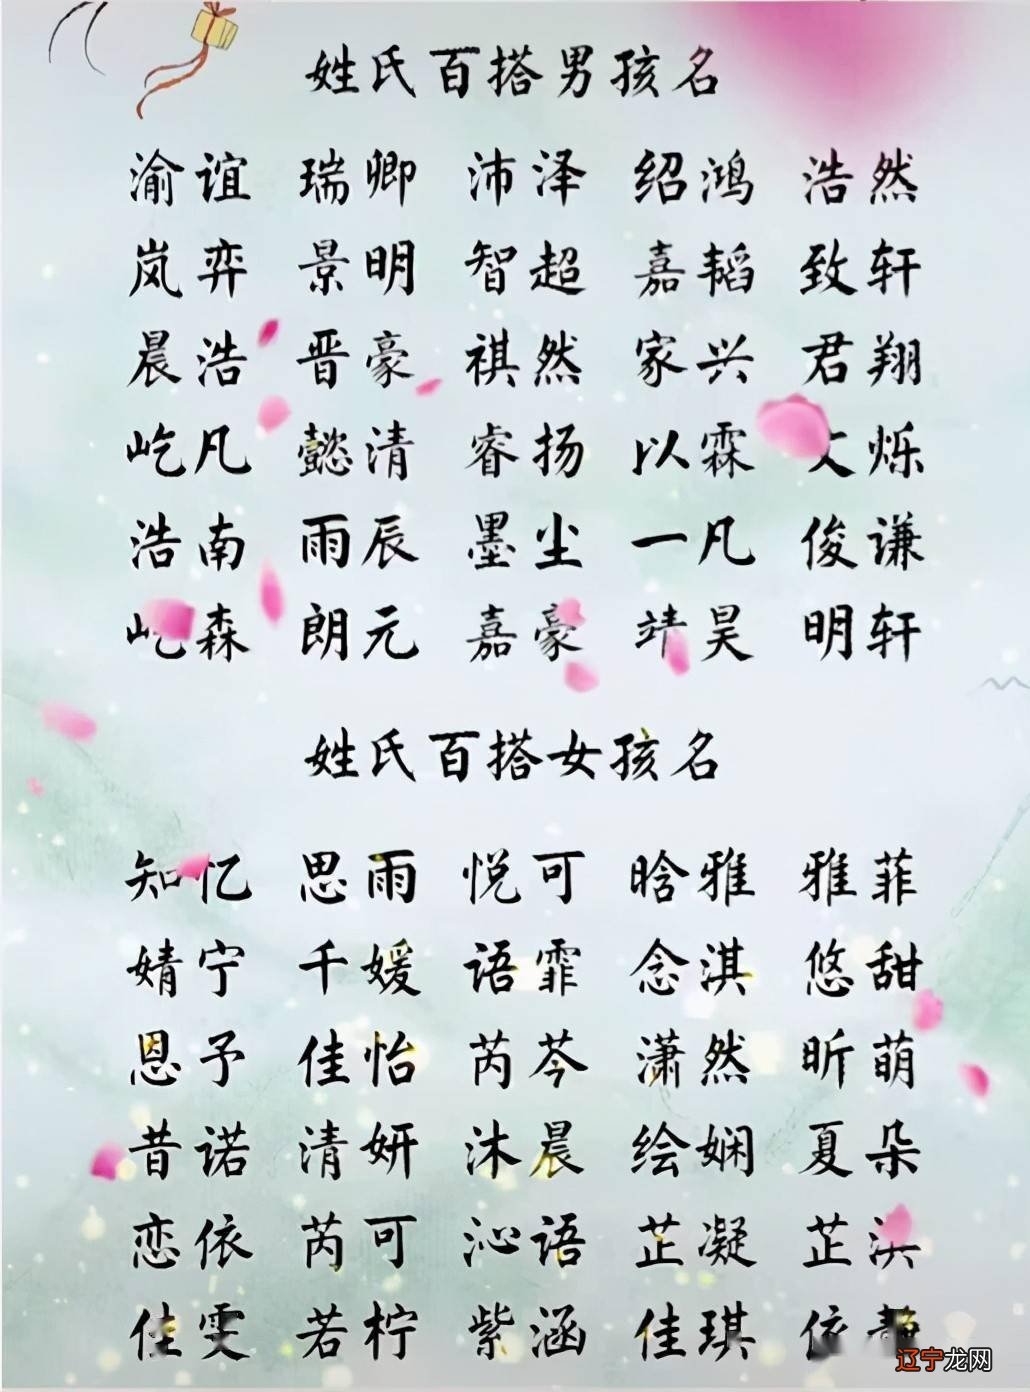 姓氏百搭男孩名
渝谊 瑞卿 沛泽 绍鸿 浩然
岚弈 景明 智超 嘉韬 致轩
晨浩 晋豪 祺然 家兴 君翔
屹凡 懿清 睿扬 以霖 文烁
浩南 雨辰 墨尘 一凡 俊谦
屹森 朗元 嘉豪 靖昊 明轩
姓氏百搭女孩名
知忆 思雨 悦可 晗雅 雅菲
婧宁 千媛 语霏 念淇 悠甜
恩予 佳怡 芮芩 潇然 昕萌
昔诺 清妍 沐晨 绘娴 夏朵
恋依 芮可 沁语 芷凝 芷淇
佳雯 若柠 紫涵 佳琪 依静
辽宁龙网